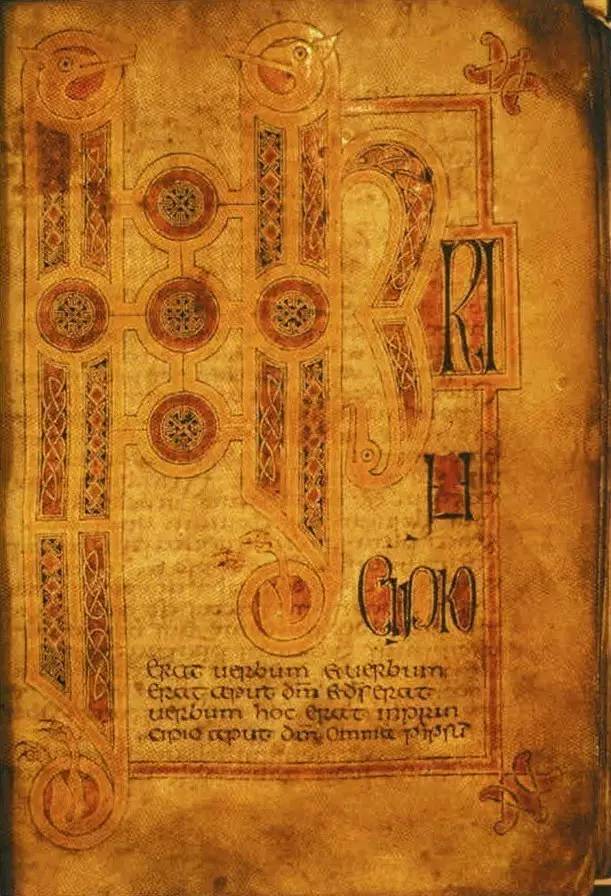 INP
RI
N
CIPIO
erat uerbum & uerbum
erat aput dm̄ & ds̄ erat
uerbum hoc erat inprin
cipio aput dm̄ Omnia p̄ ipsū